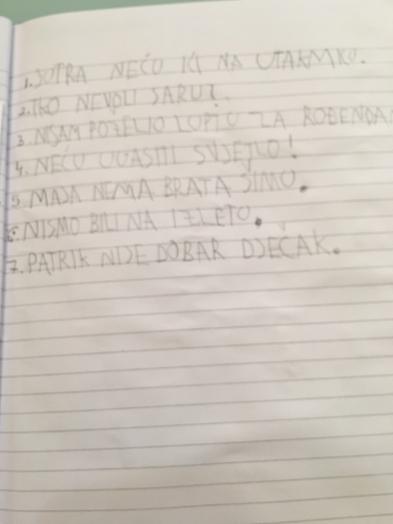 1. SUTRA NEĆU IĆI NA UTAKMICU.
2. TKO NEVOLI SARU?
3. NISAM POŽELIO LOPTU ZA ROĐENDAN
4. NEĆU UGASITI SVJETLO!
5. MAJA NEMA BRATA ŠIMU.
6. NISMO BILI NA IZLETU.
7. PATRIK NIJE DOBAR DJEČAK.